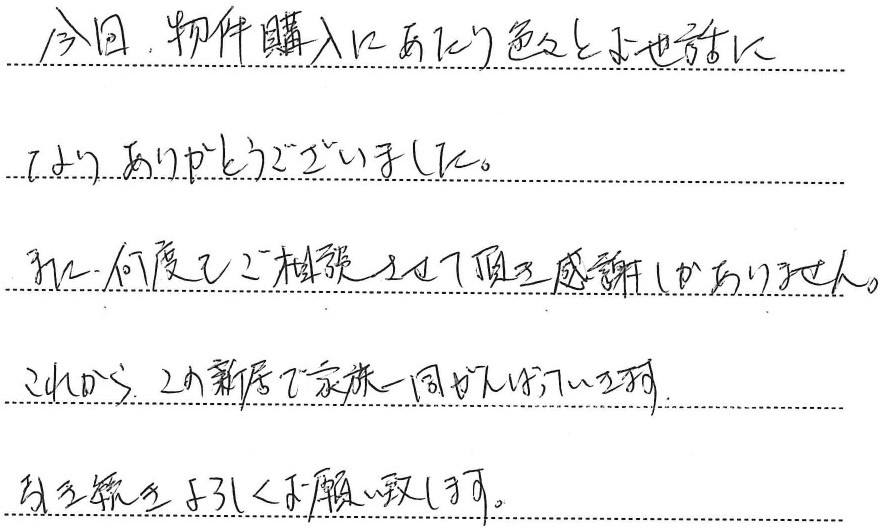 今回、物件購入にあたり色々とお世話に
なり、ありがとうございました。
また、何度もご相談させて頂き感謝しかありません。
これから、この新居で家族一同がんばっていきます。
引き続きよろしくお願い致します。